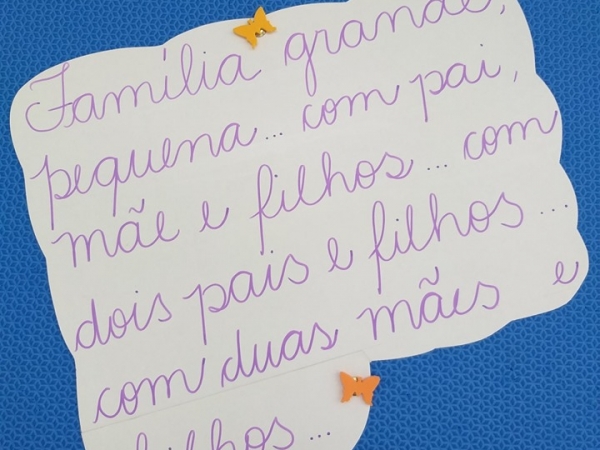 Família grande,
pequena... com pai,
mãe e filhos... com
dois pais e filhos...
com duas mães e
filhos...